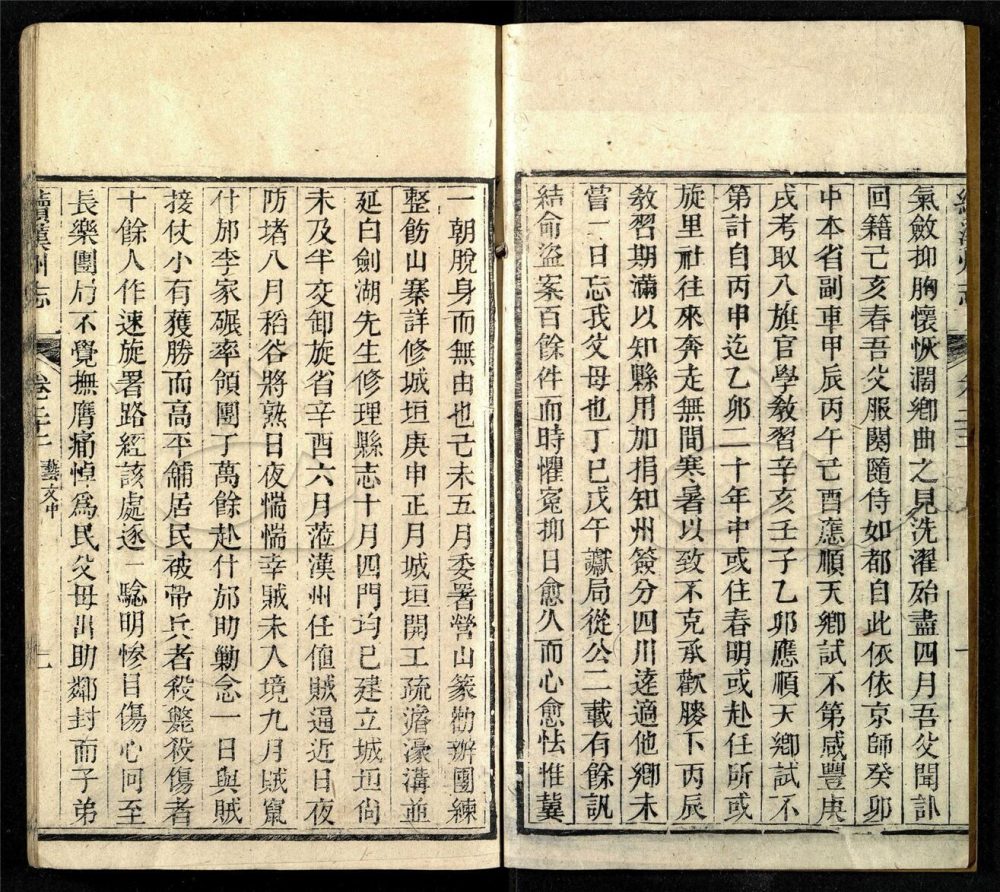 氣斂抑胸懷恢濶鄉曲之見洗濯殆盡四月吾父聞訃
回籍己亥春吾父服闋隨侍如都自此依依京師癸卯
中本省副車甲辰丙午己酉應順天鄉試不第咸豐庚
戌考取八旗官學教習辛亥壬子乙卯應順天鄉試不
第計自丙申迄乙卯二十年中或住春明或赴任所或
旋里社往來奔走無間寒暑以致不克承歡膝下丙辰
教習期滿以知縣用加捐知州簽分四川遠適他鄉未
嘗一日忘我父母也丁巳戊午讞局從公二載有餘訊
結命盜案百餘件而時懼寃抑日愈久而心愈怯惟冀
一朝脫身而無由也己未五月委署營山篆勸辦團練
整飭山寨詳修城垣庚申正月城垣開工疏濬濠溝並
延白劍湖先生修理縣志十月四門均已建立城垣尙
未及半交卸旋省辛酉六月蒞漢州任値賊逼近日夜
防堵八月稻谷將熟日夜惴惴幸賊未入境九月賊竄
什邡李家碾率領團丁萬餘赴什邡助勦念一日與賊
接仗小有獲勝而高平舖居民被帶兵者殺斃殺傷者
十餘人作速旋署路經該處逐一騐明慘目傷心何至
長樂團局不覺撫膺痛悼爲民父母出助鄰封而子弟
續漢州志 卷二十二 藝文中